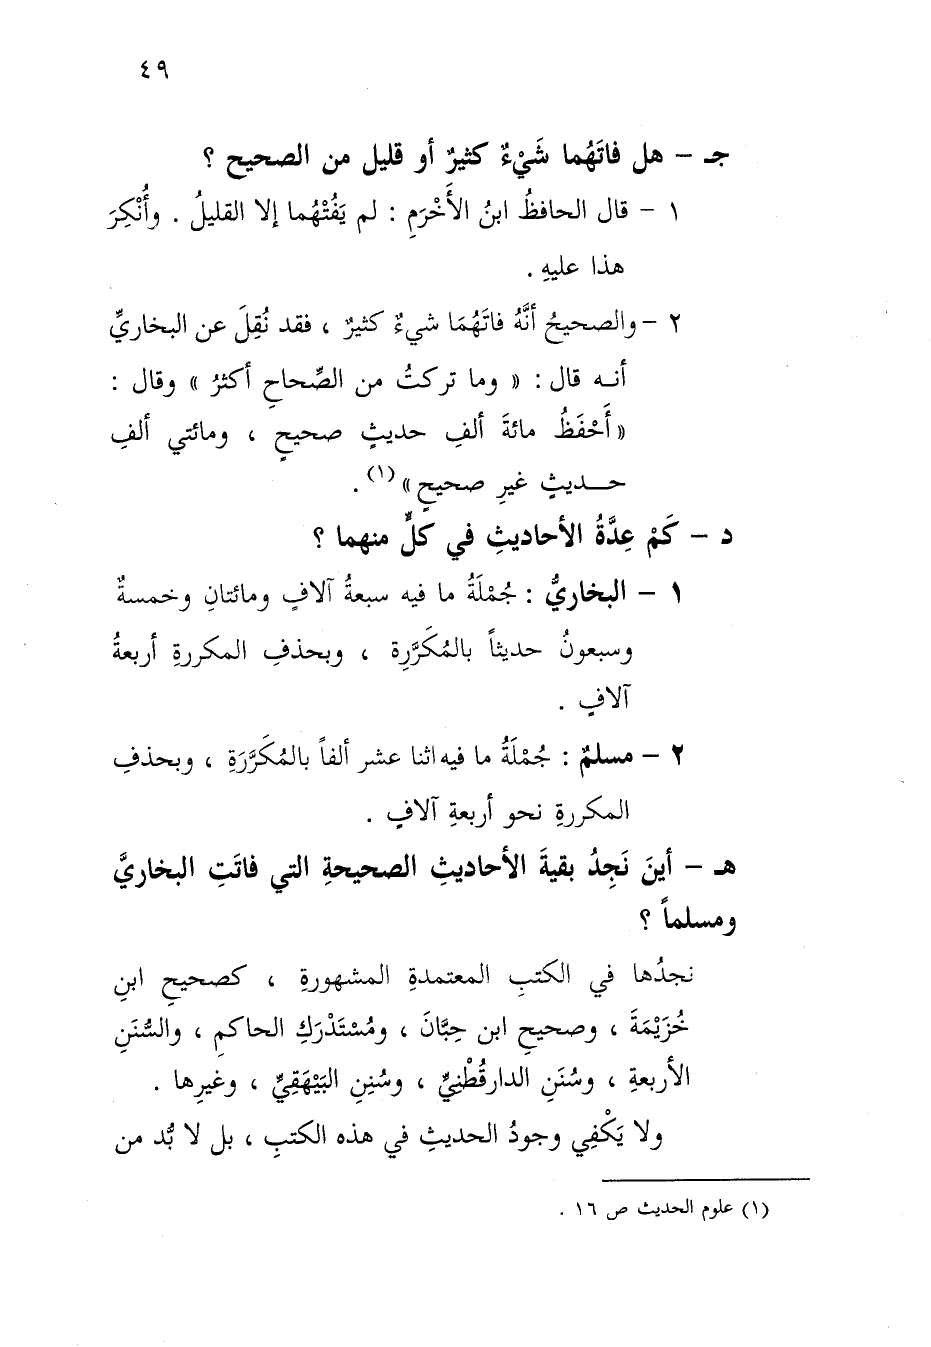 ٤٩
جـ - هل فاتَهُما شَيْءٌ كثيرٌ أو قليل من الصحيح ؟
١ - قال الحافظُ ابنُ الأَخْرَمِ : لم يَفُتْهُما إلا القليلُ . وأُنْكِرَ
هذا عليهِ .
٢ - والصحيحُ أنَّهُ فاتَهُمَا شيءٌ كثيرٌ ، فقد نُقِلَ عن البخاريِّ
أنـه قال : « وما تركتُ من الصِّحاحِ أكثرُ » وقال :
« أَحْفَظُ مائةَ ألفِ حديثٍ صحيحٍ ، ومائتي ألفِ
حـــديثٍ غيرِ صحيحٍ » (١) .
د - كَمْ عِدَّةُ الأحاديثِ في كلٍّ منهما ؟
١ - البخاريُّ : جُمْلَةُ ما فيه سبعةُ آلافٍ ومائتانِ وخمسةٌ
وسبعونُ حديثاً بالمُكَرَّرِة ، وبحذفِ المكررةِ أربعةُ
آلافٍ .
٢ - مسلمٌ : جُمْلَةُ ما فيه اثنا عشر ألفاً بالمُكَرَّرَةِ ، وبحذفِ
المكررةِ نحو أربعةِ آلافٍ .
هـ - أينَ نَجِدُ بقيةَ الأحاديثِ الصحيحةِ التي فاتَتِ البخاريَّ
ومسلماً ؟
نجدُها في الكتبِ المعتمدةِ المشهورةِ ، كصحيحِ ابنِ
خُزَيْمَةَ ، وصحيحِ ابن حِبَّانَ ، ومُسْتَدْرَكِ الحاكمِ ، والسُّنَنِ
الأربعةِ ، وسُنَنِ الدارقُطْنِيِّ ، وسُنِنِ البَيْهَقِيِّ ، وغيرِها .
ولا يَكْفِي وجودُ الحديثِ في هذه الكتبِ ، بل لا بُد من
(١) علوم الحديث ص ١٦ .